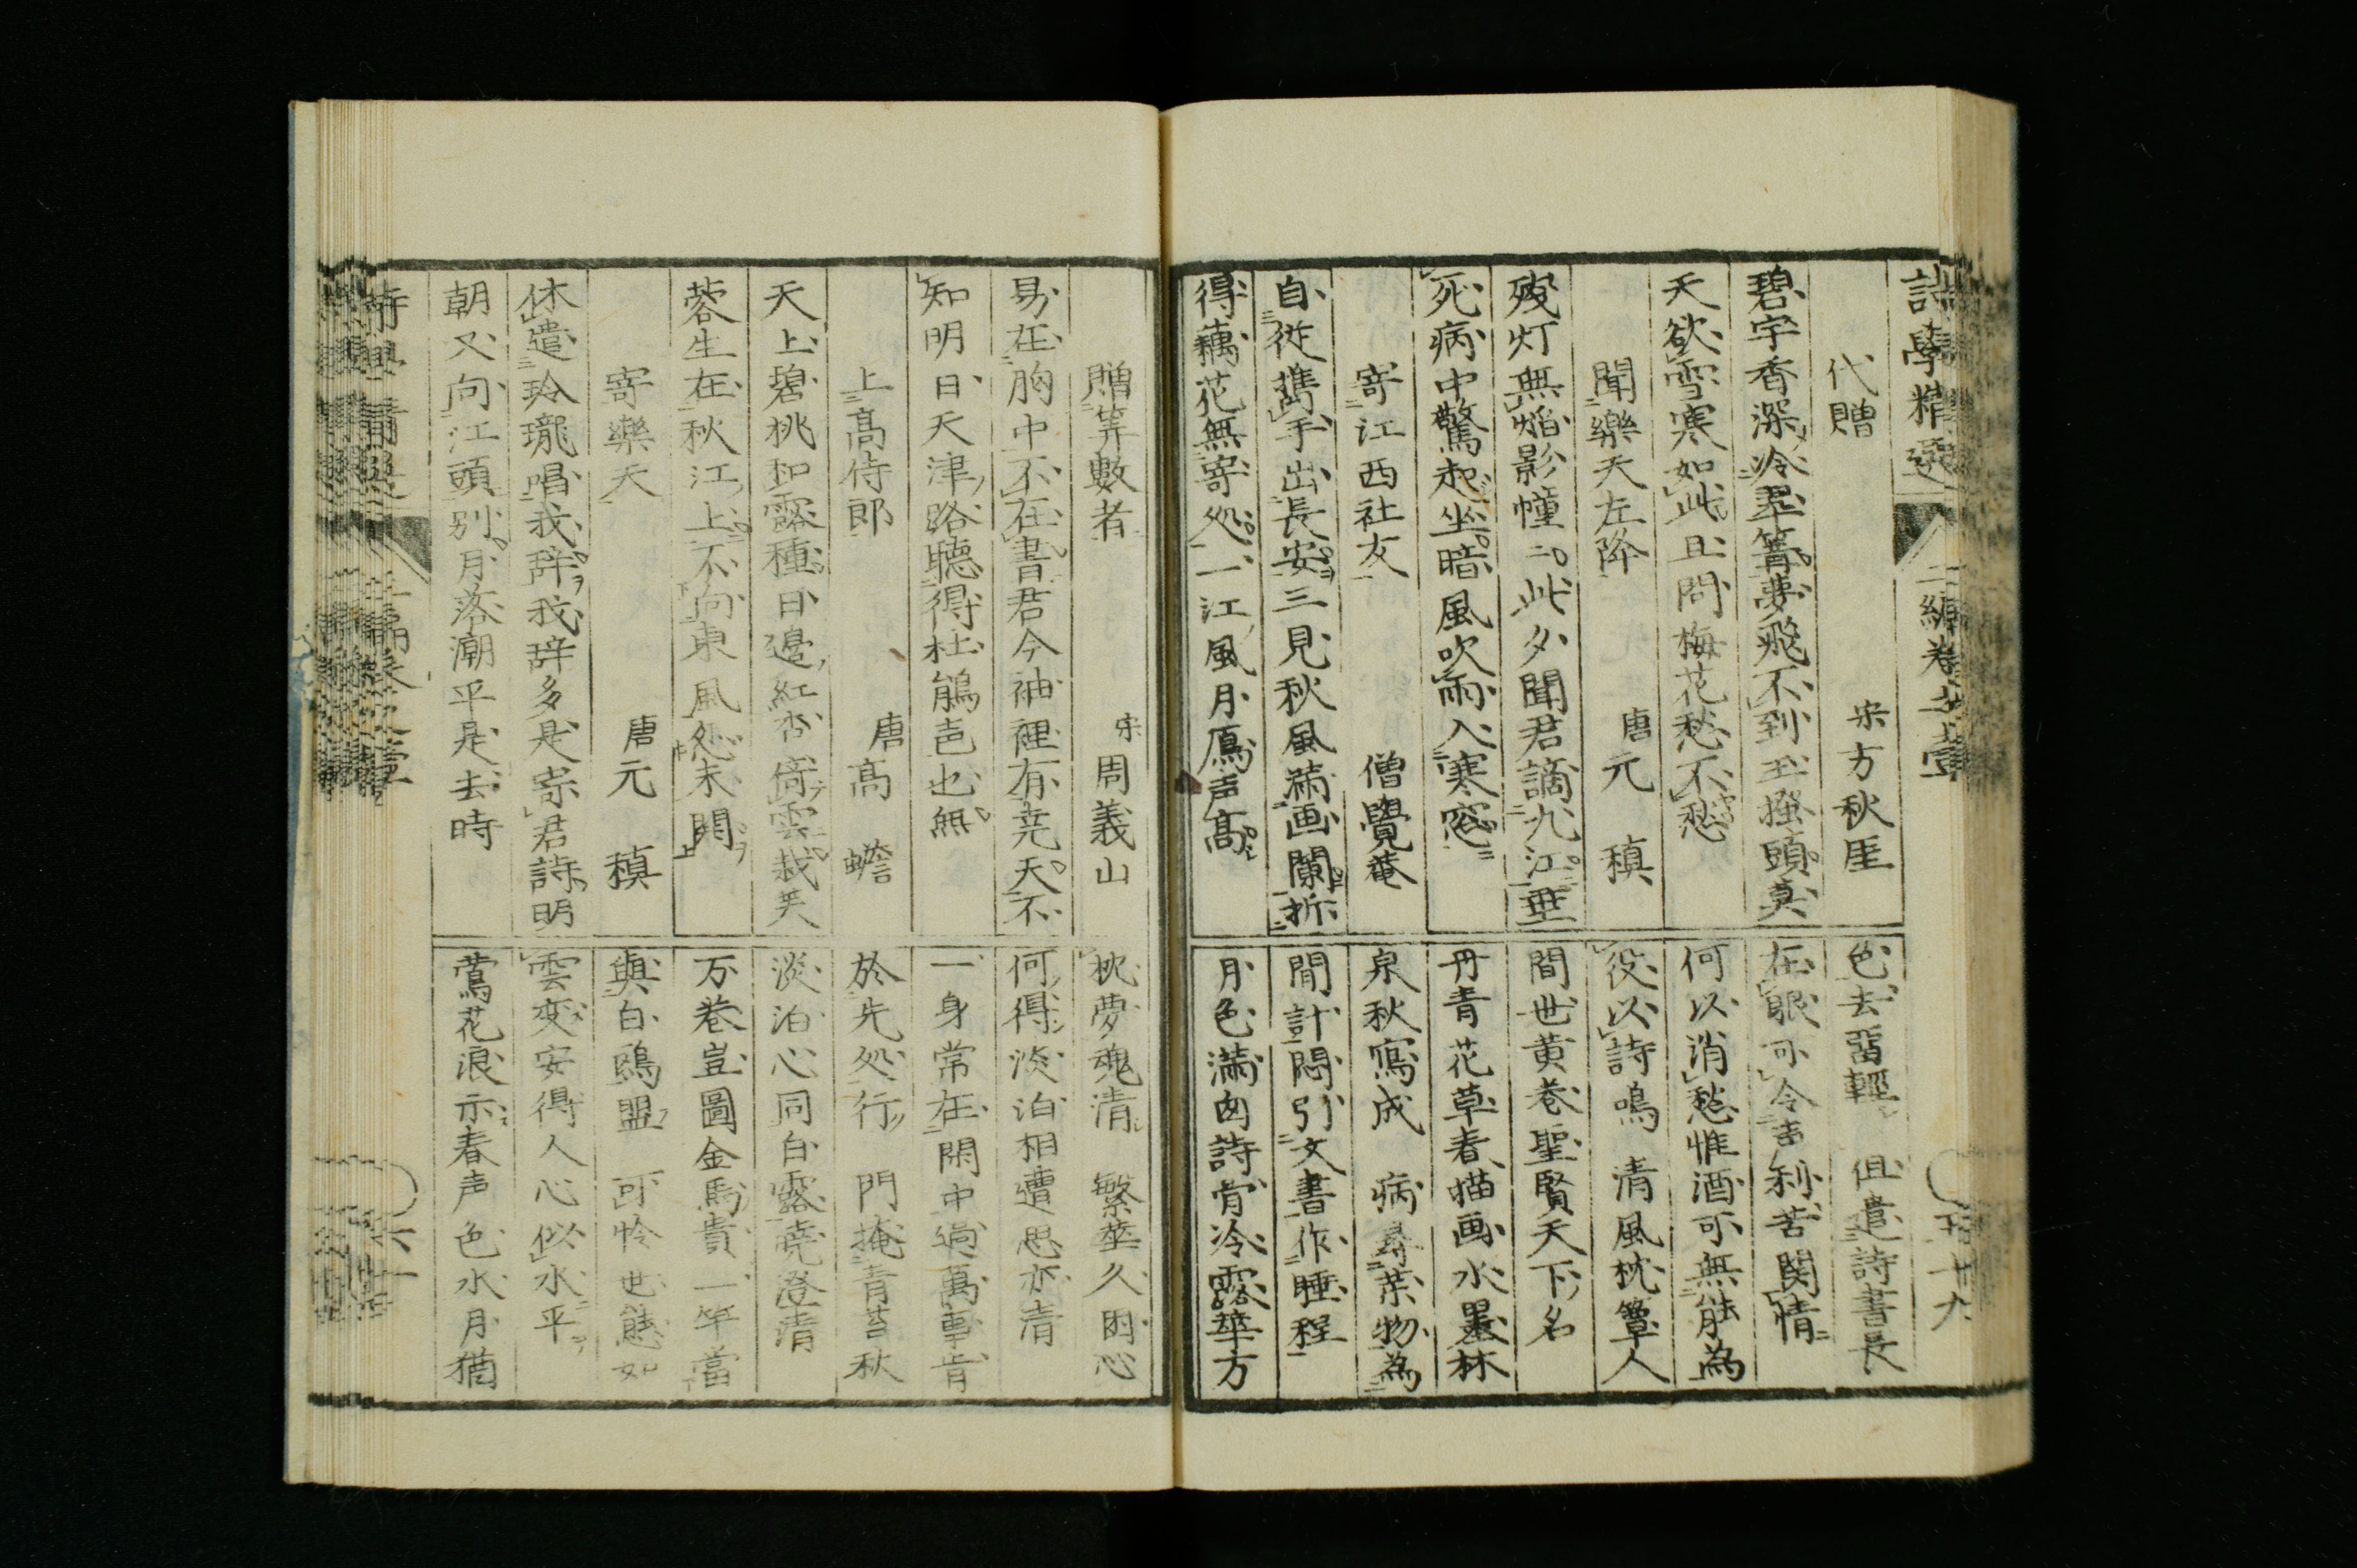 詩學精選 二編卷之壹
代贈 宋方秋厓
碧宇香深冷翠篝夢飛不到玉搔頭莫
天欲雪寒如此且問梅花愁不愁
聞樂天左降 唐元 稹
殘灯無焰影幢〻此夕聞君謫九江垂
死病中驚起坐暗風吹雨入寒窓
寄江西社友 僧覺菴
自從攜手出長安三見秋風满画闌折
得藕花無寄処一江風月鴈声高
色去畱輕 但遣詩書長
在眼可令声利苦関情
何以消愁惟酒可無能為
役以詩鳴 清風枕簟人
間世黄巻聖賢天下名
丹青花草春描画水墨林
泉秋寫成 病尋藥物為
閒計悶引文書作睡程
月色满囱詩肯冷露華方
贈筭數者 宋周義山
易在胸中不在書君今袖裡有堯天不
知明日天津路聽得杜鵑声也無
上高侍郎 唐高 蟾
天上碧桃和露種日邉紅杏倚雲栽芙
蓉生在秋江上不向東風怨未開
寄樂天 唐元 稹
休遣玲瓏唱我辞我辞多是寄君詩明
朝又向江頭别月落潮平是去時
枕夢魂清 繁華久困心
何得淡泊相遭思亦清
一身常在閑中過萬事肯
於先処行 門掩青苔秋
淡泊心同白露暁澄清
万巻豈圖金馬貴一竿當
與白鷗盟 可怜世態如
雲変安得人心似水平
鶯花浪示春声色水月猶